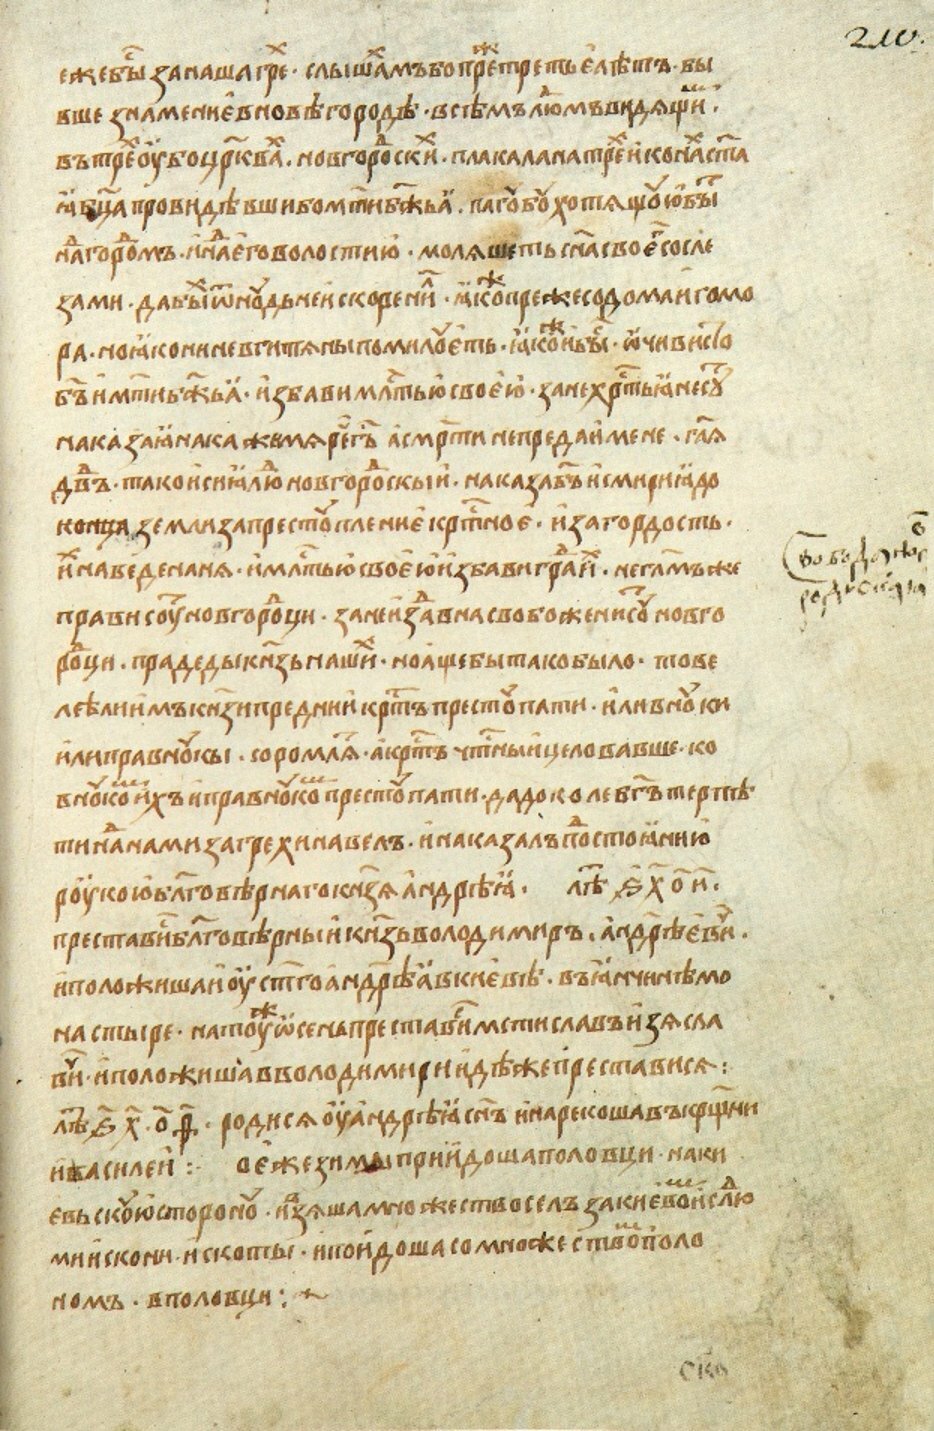 210.
ежебы҇ за наша грѣⷯ · слышаⷯмъ бо преⷤ третьеѥ лѣтъ · бы
вше знамениѥ в новѣгородѣ · всѣмъ лю҇мъ видящиⷨ ·
въ трⷯе оубо црк҃ваⷯ · новгороⷣскиⷯ · плакала на трⷯе иконаⷯ ст҃а
ꙗ бц҃а провидѣвши бо мт҃и бж҃ьꙗ · пагоубоу хотящоую бы҇ти
наⷣ городомъ · и наⷣ ѥго волостию · моляшеть сн҃а своеⷢ҇ со сле
зами · дабы иⷯ ѿноудь не искорениⷧ · ꙗкоⷤ преже содома и гомо
ра · но ꙗко ниневгитяны помилоуѥть · ꙗкоⷤ и бы҇ · ѡчивисто
бъ҃ и мт҃и бж҃ьꙗ · избави мл҇тью своѥю · зане хрⷭ҇тьꙗне соуть
наказаꙗ наказа мя рⷱ҇е гь҃ а смр҃ти не предаи мене · гл҃я
дв҃дъ · тако и сиꙗ люⷣ новгороⷣскыи · наказа бъ҃ и смири ꙗ до
конца земли за престоуплениѥ крⷭ҇тноѥ · и за гордость ·
иⷯ наведе на ня · и мл҇тью своѥю избави граⷣ иⷯ · не гл҃мъ же
прави соуть новгороⷣци · зане изаⷣвна свобожени соуть новго
роⷣци · прадеды кн҃зь нашиⷯ · но аще бы тако было · то ве
лѣли имъ кн҃зи преднии крⷭ҇тъ престоупати · или вноуки
или правноукы · соромля҇ · а крⷭ҇тъ чⷭ҇тныи целовавше · ко
вноукоⷨ ихъ и правноукоⷨ престоупати · да доколе бг҃ъ терпѣ
ти наⷣ нами за грехи навелъ · и наказалъ по достоꙗнию
роукою блг҃овѣрнаго кн҃зя андрѣꙗ · лѣⷮ ҂ѕ҃ х҃ о҃ и҃ ·
преставиⷭ҇ блг҃овѣрныи кн҃зь володимиръ · андрѣѥвиⷱ ·
и положиша и оу ст҃го андрѣꙗ в киѥвѣ · въ ꙗнчинѣ мо
настыре · на тоуⷤ ѡсень преставиⷭ҇ мстиславъ изясла
виⷱ · и положиша в володимири идѣже преставися :
лѣⷮ ҂ѕ҃ х҃ · о҃ ѳ҃ · родися оу андрѣꙗ сн҃ъ и нарекоша въ крщ҃нии
и василеи : · ѡѥже зимы приидоша половци · на ки
ѥвьскоую стороноу · и взяша множество селъ за киѥвоⷨ и с люⷣ
ми и с кони · и скоты · и поидоша со множествоⷨ поло
номъ · в половци : ~